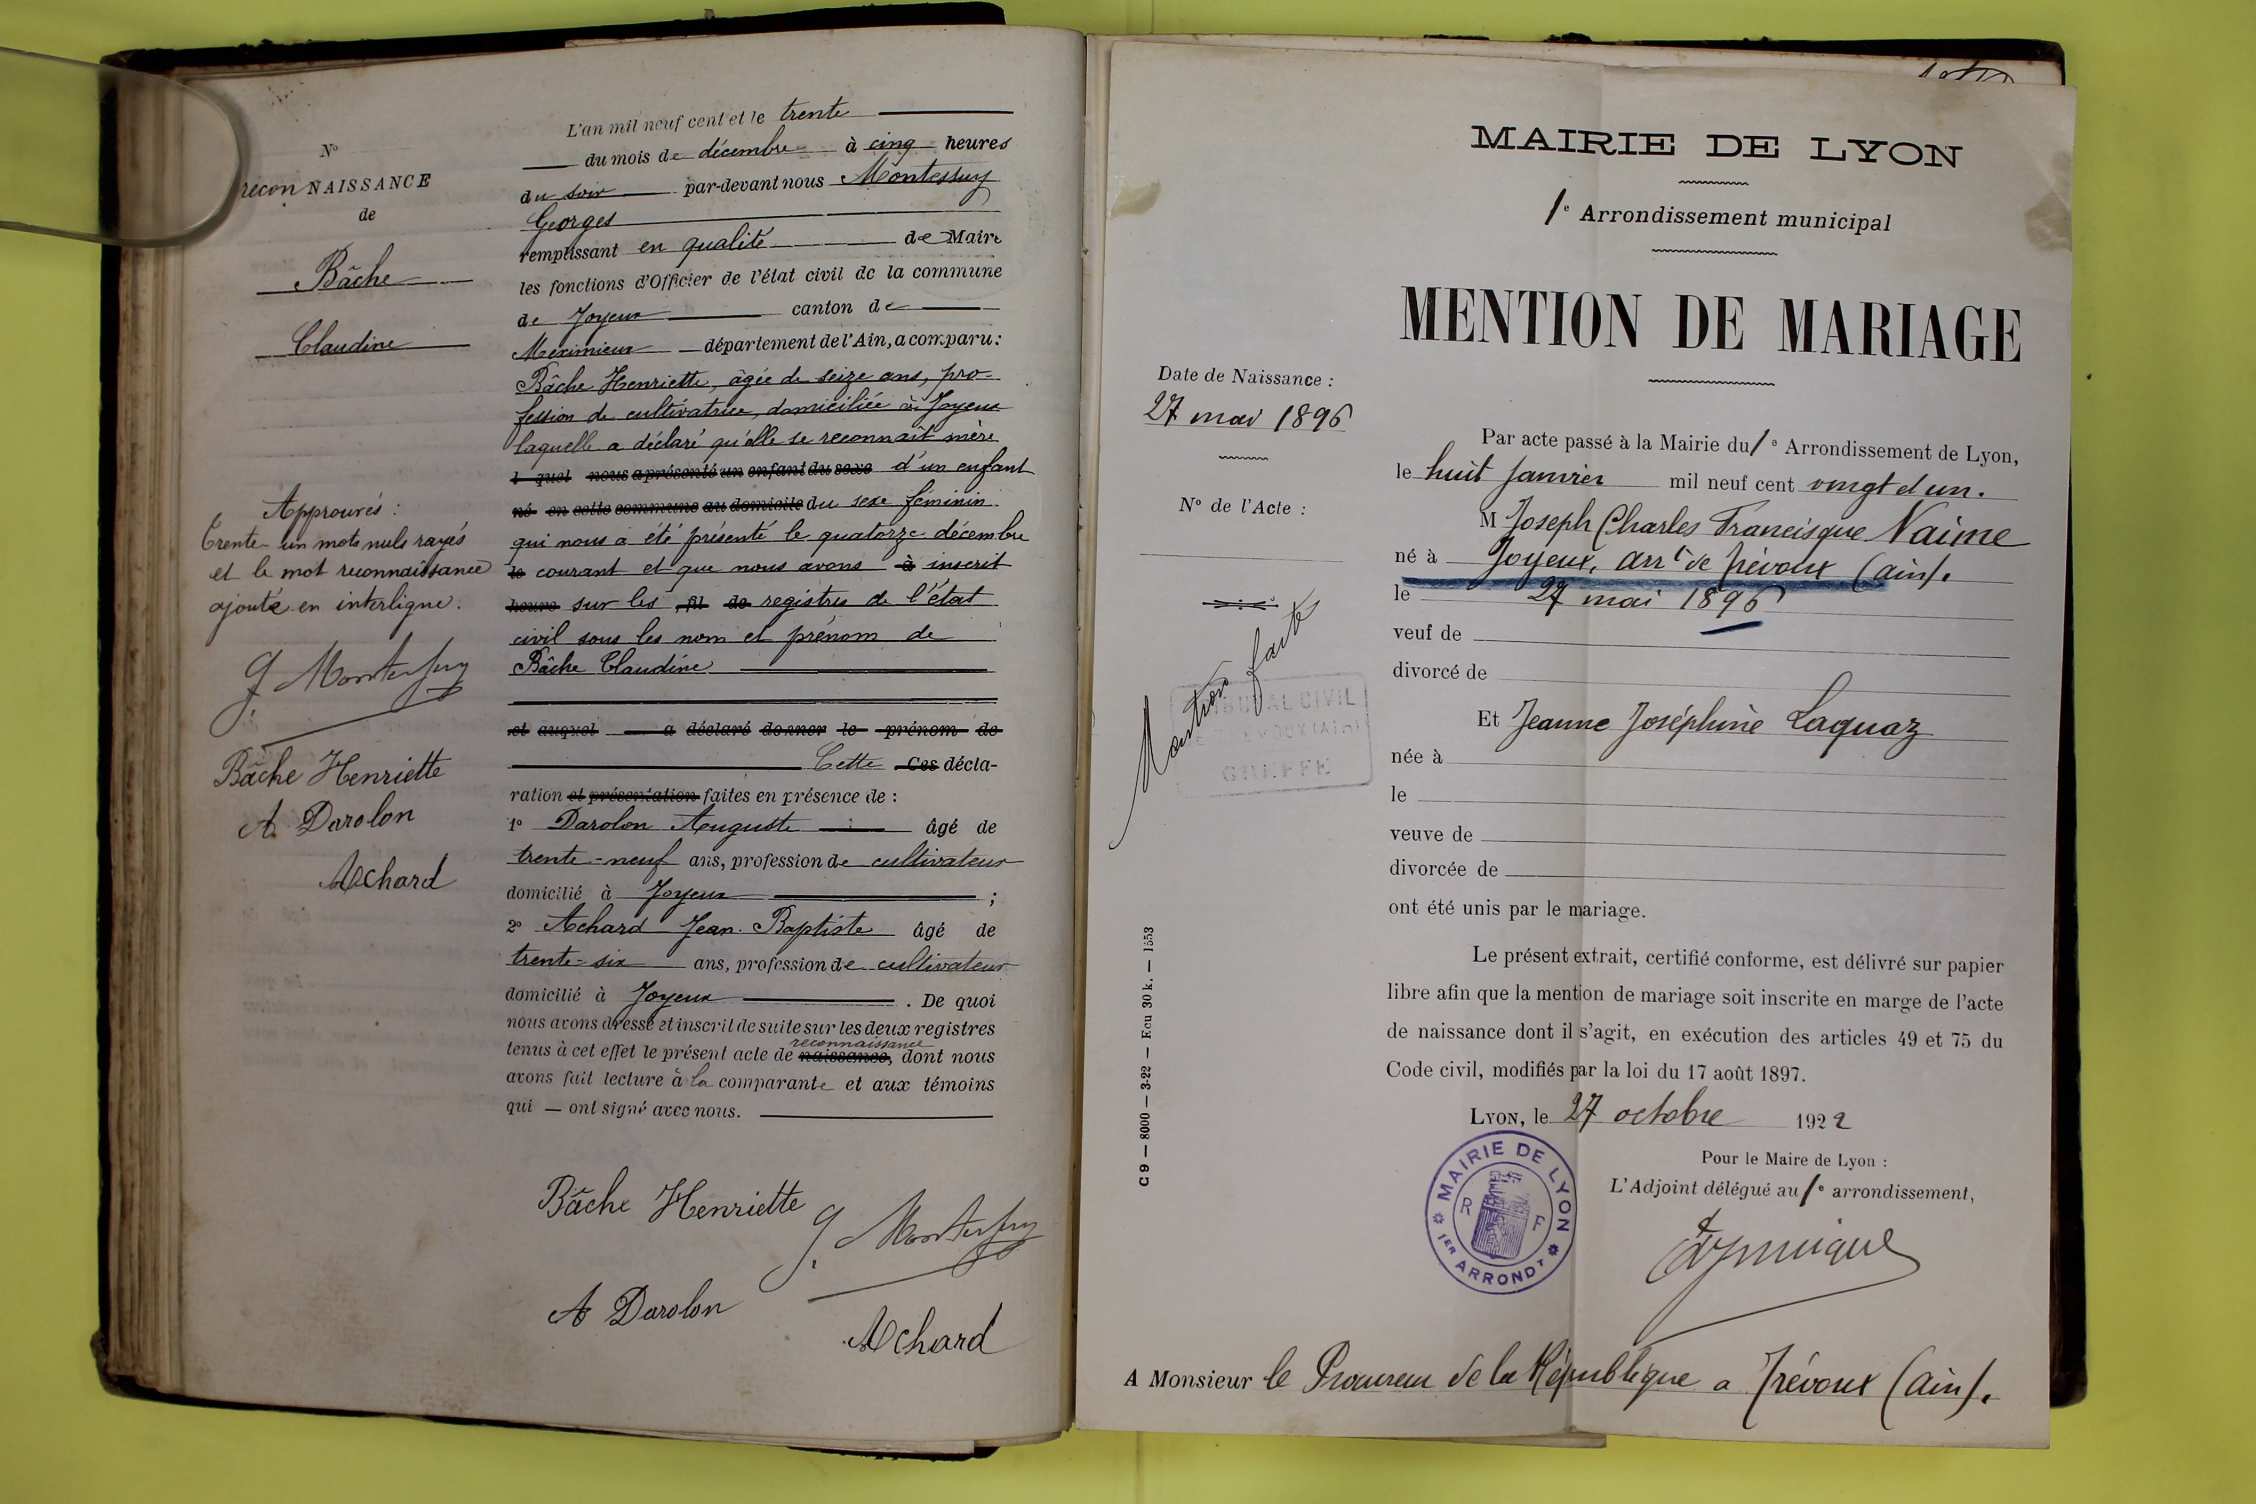 L'an mil neuf cent et le trente
du mois de décembre à cinq heures
du soir par-devant nous Montessuy
Georges
remplissant en qualité de Maire
les fonctions d'Officier de l'état civil de la commune
de Joyeux canton de
Meximieux département de l'Ain, a comparu:
Bâche Henriette, âgée de seize ans, pro-
fession de cultivatrice, domiciliée à Joyeux
laquelle a déclaré qu'elle se reconnaît mère
l quel nous a présenté un enfant du sexe d'un enfant
né en cette commune au domicile du sexe féminin
qui nous a été présenté le quatorze décembre
le courant et que nous avons à inscrit
heure sur les fil de registres de l'état
civil sous les nom et prénom de
Bâche Claudine
et auquel a déclaré donner le prénom de
Cette Ces décla-
ration et présentation faites en présence de :
1º Darolon Auguste âgé de
trente-neuf ans, profession de cultivateur
domicilié à Joyeux ;
2º Achard Jean-Baptiste âgé de
trente-six ans, profession de cultivateur
domicilié à Joyeux . De quoi
nous avons dressé et inscrit de suite sur les deux registres
reconnaissance
tenus à cet effet le présent acte de naissance, dont nous
avons fait lecture à la comparante et aux témoins
qui — ont signé avec nous.
Bâche Henriette
G. Montessuy
A Darolon
Achard
Nº
recon NAISSANCE
de
Bâche
Claudine
Approuvés :
Trente-un mots nuls rayés
et le mot reconnaissance
ajouté en interligne.
G. Montessuy
Bâche Henriette
A. Darolon
Achard
MAIRIE DE LYON
1e Arrondissement municipal
MENTION DE MARIAGE
Date de Naissance :
27 mai 1896
Nº de l'Acte :
Mention faite
TRIBUNAL CIVIL
DE TRÉVOUX (Ain)
GREFFE
C 9 — 8000 — 3-22 — Ecu 30 k. — 1553
Par acte passé à la Mairie du 1e Arrondissement de Lyon,
le huit janvier mil neuf cent vingt et un.
M Joseph Charles Francisque Naime
né à Joyeux, arrt de Trévoux (Ain).
le 27 mai 1896
veuf de
divorcé de
Et Jeanne Joséphine Laquaz
née à
le
veuve de
divorcée de
ont été unis par le mariage.
Le présent extrait, certifié conforme, est délivré sur papier
libre afin que la mention de mariage soit inscrite en marge de l'acte
de naissance dont il s'agit, en exécution des articles 49 et 75 du
Code civil, modifiés par la loi du 17 août 1897.
LYON, le 27 octobre 1922
Pour le Maire de Lyon :
L'Adjoint délégué au 1e arrondissement,
MAIRIE DE LYON
R F
1ER ARRONDT
A Monsieur le Procureur de la République a Trévoux (Ain).